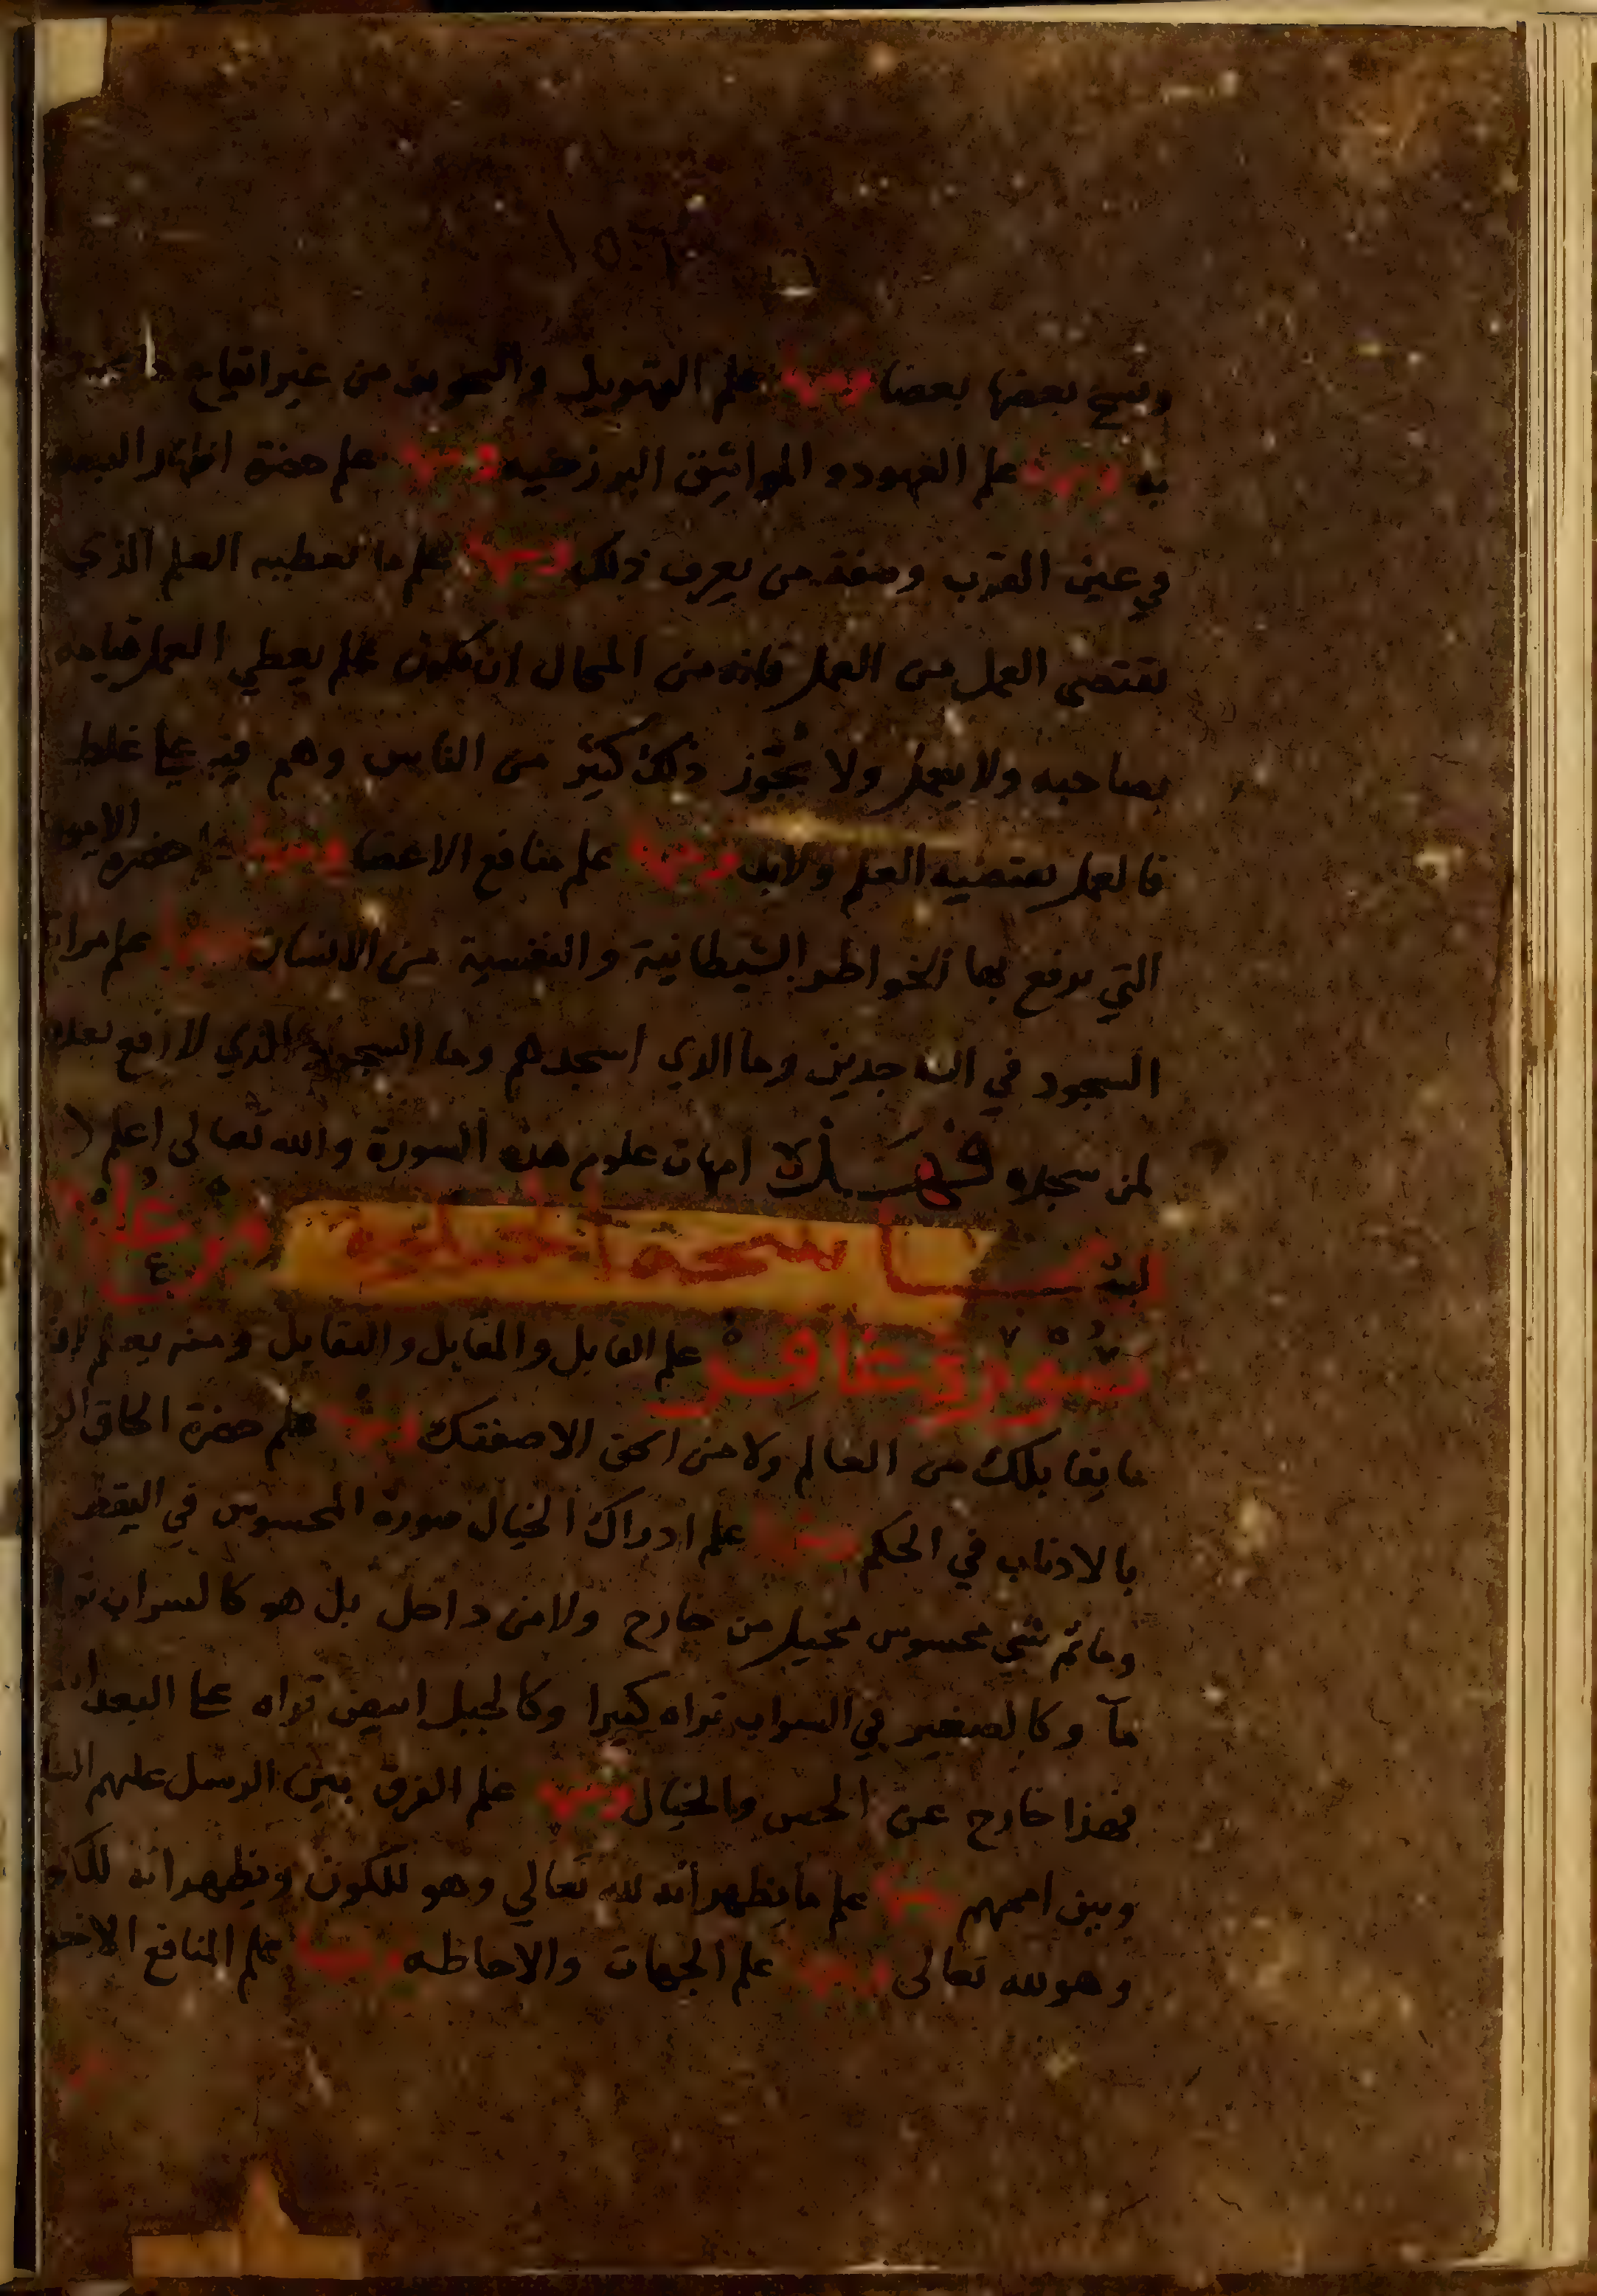 ونسخ بعضها بعضا ومنها علم التهويل والتخويف من غير ايقاع ما
به ومنها علم العهود والمواثيق البرزخيه ومنها علم حضرة اظهار البعد
في عين القرب وصفة من يعرف ذلك ومنها علم ما تعطيه العلم الذي
يقتضي العمل من العمل فانه من المحال ان يكون علم يعطي العمل قيامه
بصاحبه ولا يعمل ولا يجوز ذلك كثير من الناس وهم فيه على غلط
فالعمل يقتضيه العلم ولابد ومنها علم منافع الاعضا ومنها حضرة الامور
التي يدفع بها الخواطر الشيطانية والنفسية من الانسان ومنها علم
السجود في الساجدين وما الذي اسجدهم وما السجود الذي لا رفع بعده
لمن سجده فهذه امهات علوم هذه السورة والله تعالى اعلم
الباب
سورة غافر علم القابل والمقابل والتقابل ومنه يعلم
ما يقابلك من العالم ولا من الحق الا صفتك ومنها علم حضرة الحاق
بالاذناب في الحكم ومنها علم ادراك الخيال صورة المحسوس في اليقظه
وما ثم شي محسوس مخيل من خارج ولا من داخل بل هو كالسراب
مآ وكالصغير في السراب تراه كبيرا وكالجبل ابيض تراه على البعد
فهذا خارج عن الحس والخيال ومنها علم الفرق بين الرسل عليهم
وبين اممهم ومنها علم ما يظهر انه لله تعالي وهو للكون ويظهر انه
وهو لله تعالى ومنها علم الجهات والاحاطه ومنها علم المنافع